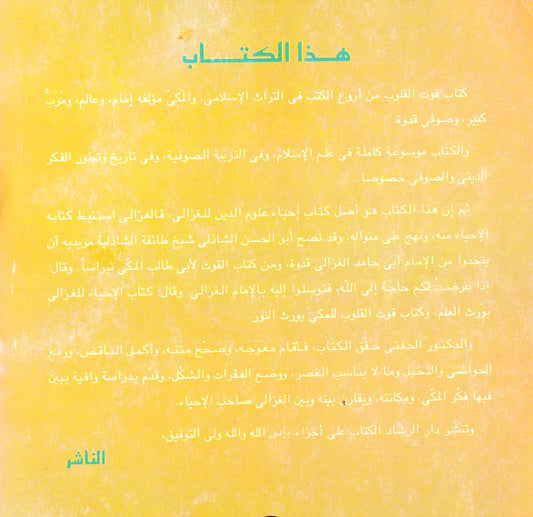 هذا الكتاب
كتاب قوت القلوب من أروع الكتب فى التراث الإسلامى، والمكىّ مؤلفه إمام، وعالم، ومَرَبٍّ
كبير، وصوفى قدوة.
والكتاب موسوعة كاملة فى علم الإسلام، وفى التربية الصوفية، وفى تاريخ وتطور الفكر
الدينى والصوفى خصوصا
ثم إن هذا الكتاب هو أصل كتاب إحياء علوم الدين للغزالى، فالغزالى استنبط كتابه
الإحياء منه، ونهج على منواله. وقد نصح أبو الحسن الشاذلى شيخ طائفة الشاذلية مريديه أن
يتخذوا من الإمام أبى حامد الغزالى قدوة، ومن كتاب القوت لأبى طالب المكّى نبراساً. وقال:
إذا عرضت لكم حاجة إلى الله، فتوسلوا إليه بالإمام الغزالى. وقال: كتاب الإحياء للغزالى
يورّث العلم، وكتاب قوت القلوب للمكى يورث النور.
والدكتور الحفنى حقّق الكتاب، فأقام معوجه، وصحّح متنه، وأكمل الناقص، ورفع
الحواشى والدخيل وما لا يناسب العصر، ووضع الفقرات والشكل، وقدم بدراسة وافية يبين
فيها فكر المكّى، ومكانته، ويقارن بينه وبين الغزالى صاحب الإحياء.
وتنشر دار الرشاد الكتاب على أجزاء بإذن الله والله ولى التوفيق،
الناشر